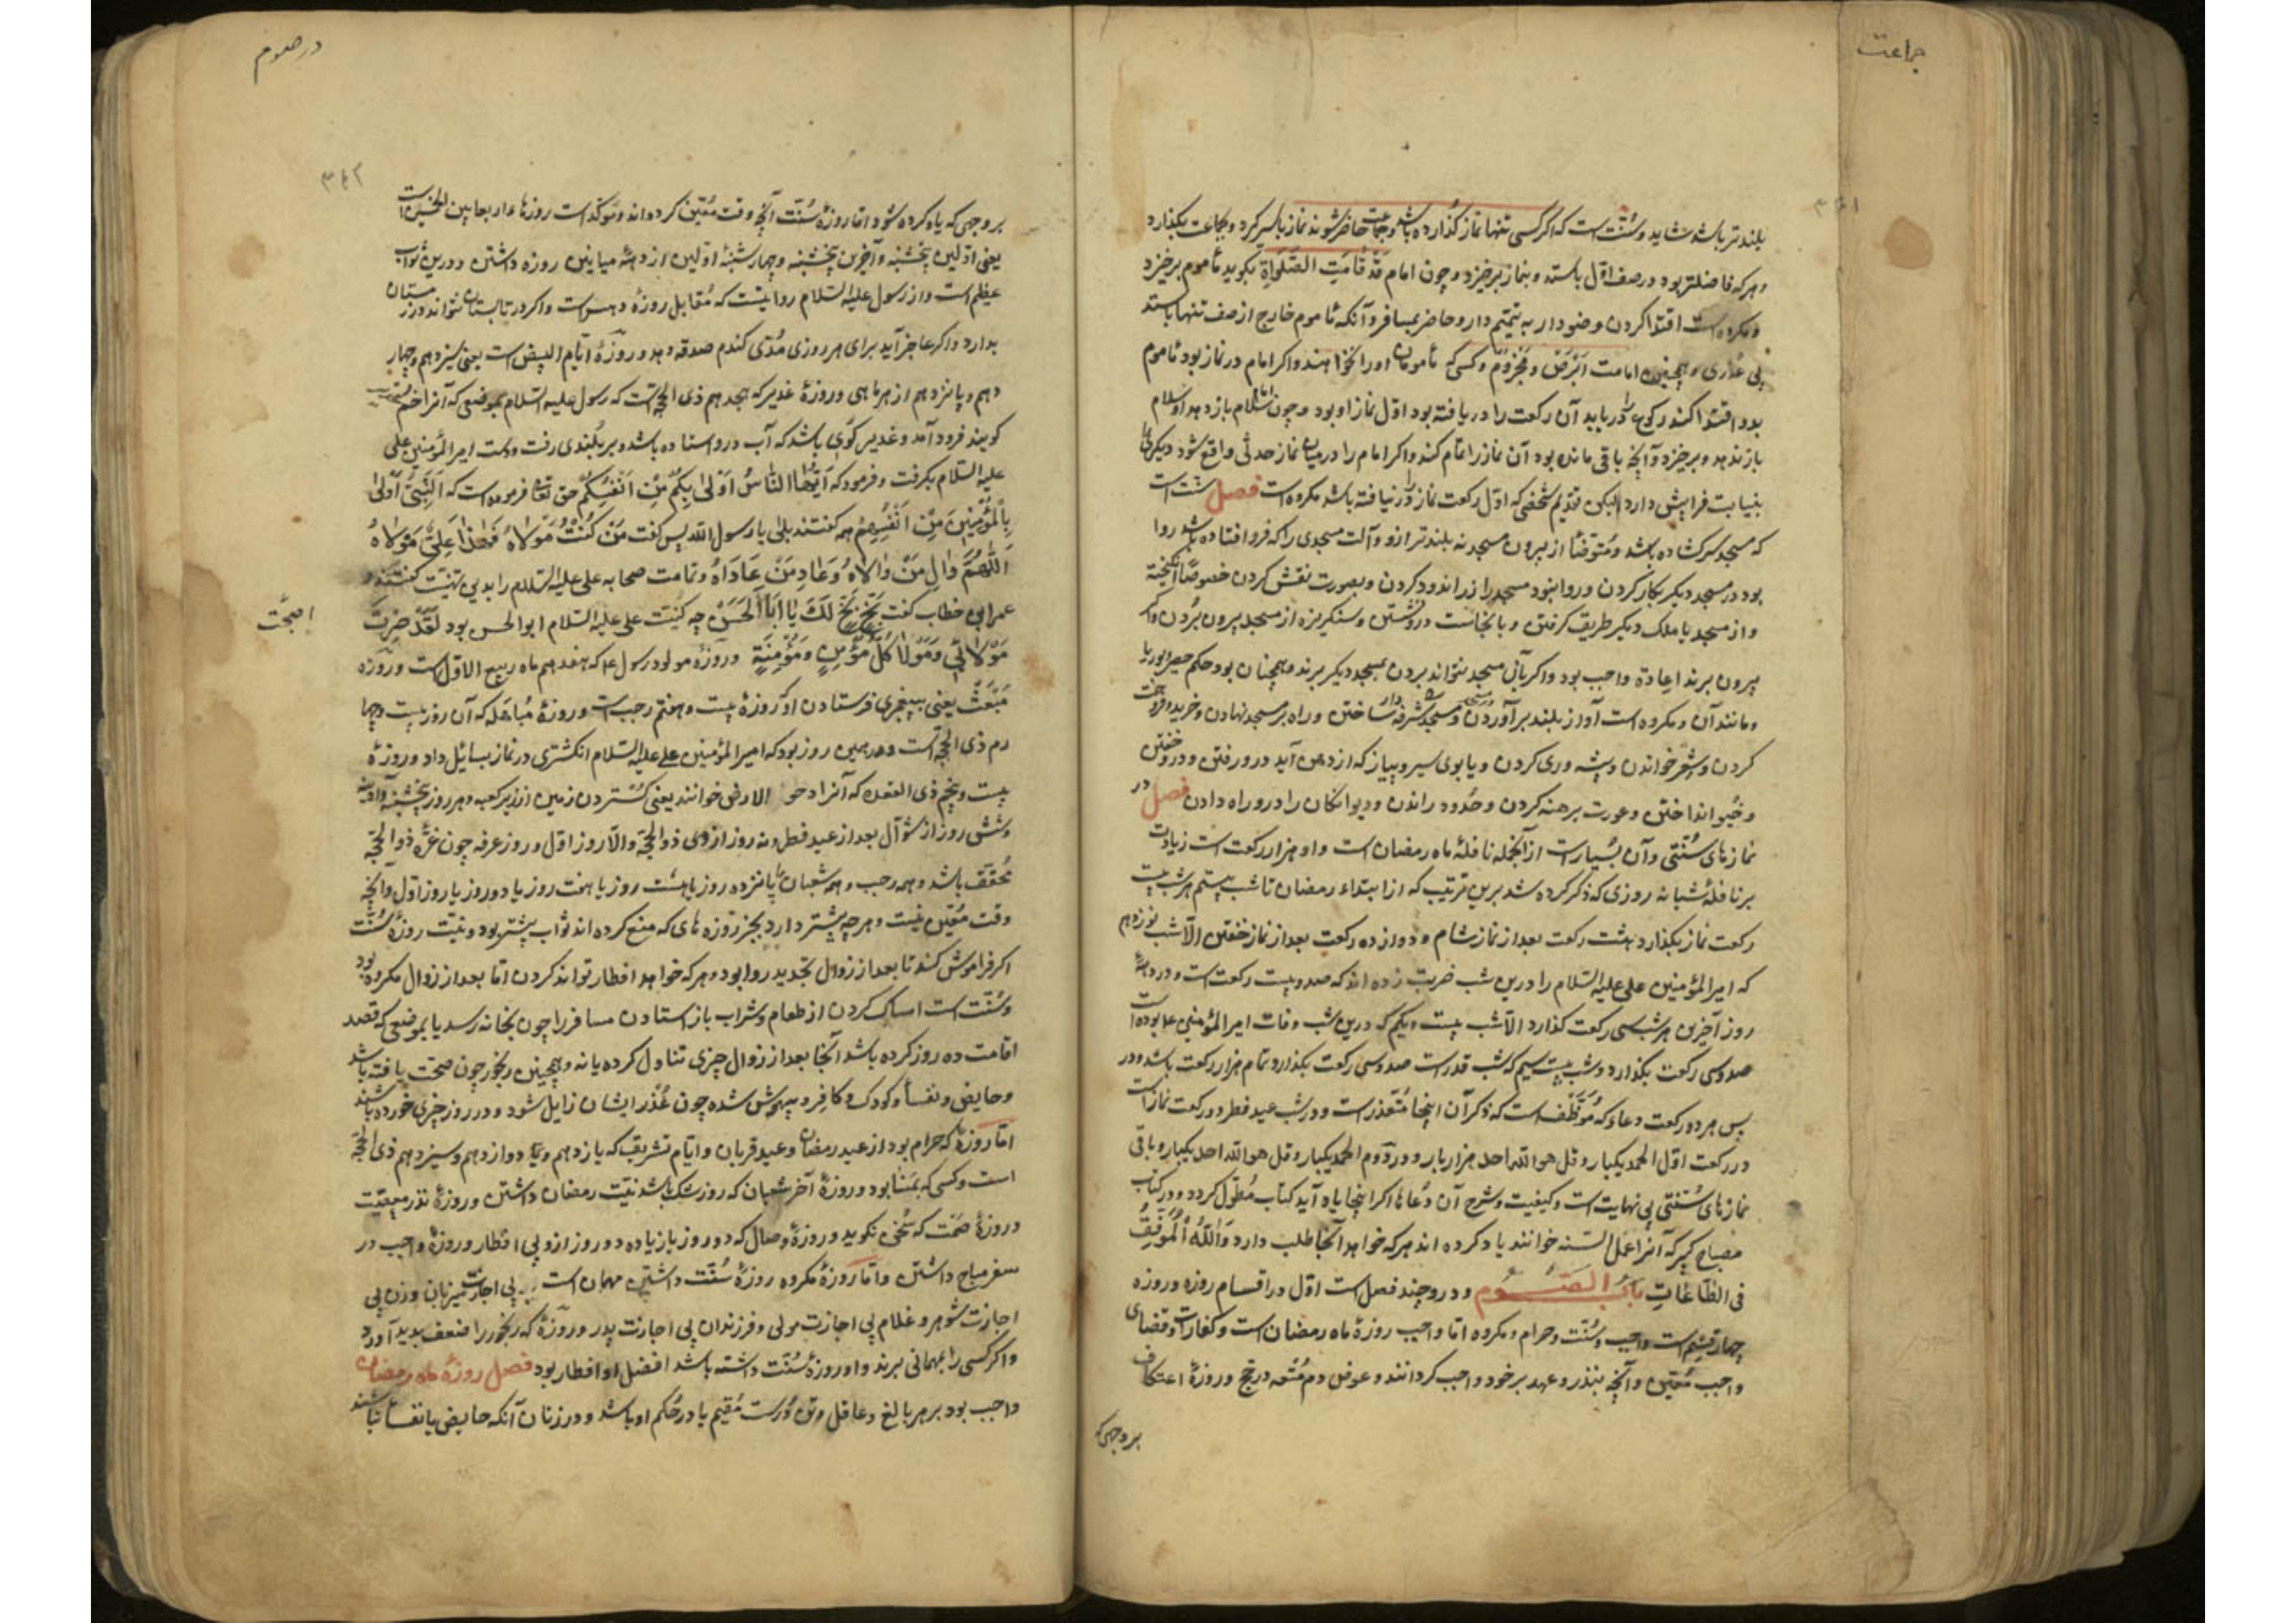 جماعت
بلندتر باشد شاید و سُنّت است که اگر کسی تنها نماز گذارده باشد و جماعت حاضر شوند نماز باسر گیرد و بجماعت بگذارد
و هر که فاضلتر بود در صف اوّل باستد و بنماز برخیزد و چون امام قَدْ قَامَتِ الصَّلَواةِ بگوید مأموم برخیزد
و مکروه است اقتدا کردن وضودار به تیمّم دار و حاضر بمسافر و آنکه مأموم خارج از صف تنها باستد
بی عُذری و همچنین امامت اَبْرَصْ و مَجْزوُم و کسی که مأمومان او را نخواهند و اگر امام در نماز بود مأموم
بدو اقتدا کند رکوع را دریابد آن رکعت را دریافته بود اوّل نماز او بود و چون امام سلام باز دهد او سلام
باز ندهد و برخیزد و آنچه باقی مانده بود آن نماز را تمام کند و اگر امام را در میان نماز حدثی واقع شود دیگری را
بنیابت فرا پیش دارد لیکن تقدیم شخصی که اوّل رکعت نماز را در نیافته باشد مکروه است فصل سُنّت است
که مسجد سرگشاده باشد و مُتَوَضّا از بیرون مسجد نه بلندتر ازو و آلت مسجدی را که فرو افتاده باشد روا
بود در مسجد دیگر بکار کردن و روا نبود مسجد را زر اندود کردن و بصورت نقش کردن خصوصًا
و از مسجد با ملک دیگر طریق گرفتن و یا نجاست درو شستن و سنگریزه از مسجد بیرون بُردن و اگر
بیرون برند اِعادۀ واجب بود و اگر بآن مسجد نتوانند بردن بمسجد دیگر برند و همچنان بود حکم حصیر و بوریا
و مانند آن و مکروه است آواز بلند برآوردن و مسجد را شُرفه ساختن و راه بر مسجد نهادن و خرید و فروخت
کردن و شِعْر خواندن و پیشه وری کردن و با بوی سیر و پیاز که از دهن آید درو رفتن و درو خفتن
و خیُو انداختن و عورت برهنه کردن و حُدود راندن و دیوانگان را درو راه دادن فصل در
نمازهای سُنّتی و آن بسیار است از آنجمله نافلۀ ماه رمضان است و او هزار رکعت است زیادت
بر نافلۀ شبانه روزی که ذکر کرده شد برین ترتیب که از ابتداء رمضان تا شب بیستم هر شب بیست
رکعت نماز بگذارد هشت رکعت بعد از نماز شام و دوازده رکعت بعد از نماز خفتن الّا شب نوزدهم
که امیر المؤمنین علی علیه السّلام را درین شب ضربت زده اند که صد و بیست رکعت است و در دهۀ
روز آخرین هر شب سی رکعت گذارد الّا شب بیست و یکم که درین شب وفات امیر المؤمنین ع بوده است
صد و سی رکعت بگذارد و شب بیست سیم که شب قدر است صد و سی رکعت بگذارد تمام هزار رکعت باشد و در
پس هر دو رکعت دعائی که مُوَظّف است که ذکر آن اینجا مُتعذر است و در شب عید فطر دو رکعت نماز است
در رکعت اوّل الحمد یکبار و قل هو الله احد هزار بار و در دوّم الحمد یکبار و قل هو الله احد یکبار و باقی
نمازهای سُنّتی بی نهایت است و کیفیت و شرح آن و دُعاها اگر اینجا یاد آید کتاب مُطوّل گردد و در کتاب
مصباح کبیر که آنرا عمل السّنه خوانند یاد کرده اند هر که خواهد آنجا طلب دارد وَاللّهُ اْلُمَوفّقُِ
فی الطّاعَاتِ بابُ الصّوم و درو چند فصل است اوّل در اقسام روزه و روزه
چهار قِسْم است واجب و سُنّت و حرام و مکروه امّا واجب روزۀ ماه رمضان است و کفارات و قضای
واجب مُعیّن و آنچه بنذر و عهد بر خود واجب گردانند و عوض دم مُتْعه در حَج و روزۀ اعتکاف
بر وجهی که
در صوم
۳۴۲
بر وجهی که یاد کرده شود امّا روزۀ سُنّت آنچه وقت مُعیّن کرده اند و مؤکّد است روزهاء اربعا بین الخمیسین است
یعنی اوّلین پنجشنبه و آخرین پنجشنبه و چهارشنبۀ اوّلین از دهۀ میانین روزه داشتن و درین ثواب
عظیم است و از رسول علیه السّلام روایتست که مُقابل روزۀ دهرست و اگر در تابستان نتواند در زمستان
بدارد و اگر عاجز آید برای هر روزی مُدّی گندم صدقه دهد و روزۀ ایّام البیض است یعنی سیزدهم و چهار
دهم و پانزدهم از هر ماهی و روزۀ غدیر که هجدهم ذی الحجّه است که رسول علیه السّلام بموضعی که آنرا خم
گویند فرود آمد و غدیر گوی باشد که آب درو استاده باشد و بر بُلندی رفت و دست امیر المؤمنین علی
علیه السّلام بگرفت و فرمود که اَیُّهَا النّاسُ اَوْلیٰ بِکُمْ مِنْ اَنْفُسِکُمْ حق تعالی فرموده است که اَلنَّبِیُّ اَوْلیٰ
بِالْمُؤْمِنِینَ مِنْ اَنْفُسِهِمْ همه گفتند بلی یا رسول الله پس گفت مَنْ کُنْتُ مَوْلَاهُ فَهٰذَا عَلِیٌّ مَوْلَاهُ
اَللّٰهُمَّ وَالِ مَنْ وَالَاهُ وَعَادِ مَنْ عَادَاهُ و تمامت صحابه علی علیه السّلام را بدین تهنیت گفتند و
عمر ابن خطاب گفت بَخْ بَخْ لَکَ یَا اَبَا الْحَسَنْ چه کُنیت علی علیه السّلام ابو الحسن بود لَقَدْ صِرْتَ
اصبحت
مَوْلَائِی وَمَوْلَا کُلِّ مُؤْمِنٍ وَمُؤْمِنَةٍ و روزۀ مولود رسول ع که هفدهم ماه ربیع الاوّل است و روزه
مَبْعَثْ یعنی بپیغمبری فرستادن او و روزۀ بیست و هفتم رجب است و روزۀ مُباهله که آن روز بیست و چها
رم ذی الحجّه است و هم درین روز بود که امیر المؤمنین علی علیه السّلام انگشتری در نماز بسائل داد و روزۀ
بیست و پنجم ذی القعده که آنرا دحو الارض خوانند یعنی گُستردن زمین از زیر کعبه و هر روز پنجشنبه و آدینه
و شش روز از شوّال بعد از عید فطر و نه روز از ذی ذوالحجّه و الّا روز اوّل و روز عرفه چون غُرّۀ ذوالحجّه
مُحقّق باشد و همه رجب و همه شعبان یا پانزده روز یا هشت روز یا هفت روز یا دو روز یا روز اوّل و آنچه
وقت مُعیّن نیست و هر چه بیشتر دارد بجز روزه های که منع کرده اند ثواب بیشتر بود و نیّت روزۀ سُنّت
اگر فراموش کند تا بعد از زوال تجدید روا بود و هر که خواهد افطار تواند کردن امّا بعد از زوال مکروه بود
و سُنّت است امساک کردن از طعام و شراب باز استادن مسافر را چون بخانه رسد یا بموضعی که قصد
اقامت ده روز کرده باشد آنجا بعد از زوال چیزی تناول کرده یا نه و همچنین رنجور چون صحّت یافته باشد
و حایض و نفسا و کودک و کافِر و بیهوش شده چون عُذْر ایشان زایل شود و در روز چیزی خورده باشند
امّا روزۀ که حرام بود از عید رمضان و عید قربان و ایّام تشریق که یازدهم و دوازدهم و سیزدهم ذی الحجّه
است و کسی که بمَنٰا بود و روزۀ آخر شعبان که روز شک باشد نیّت رمضان داشتن و روزۀ نذر معصیت
و روزۀ صَمْت که سُخن نگوید و روزۀ وصال که دو روز یا زیاده دو روز ازو بی افطار و روزۀ واجب در
سفر مباح داشتن و امّا روزۀ مکروه روزۀ سُنّت داشتن مهمان است بی اجازت میزبان و زن بی
اجازت شوهر و غلام بی اجازت مولی و فرزندان بی اجازت پدر و روزۀ که رنجور را ضعف پدید آورد
و اگر کسی را بمهمانی برند و او روزۀ سُنّت داشته باشد افضل او افطار بود فصل روزۀ ماه رمضان
واجب بود بر هر بالغ و عاقل و تن دُرست مُقیم یا در حُکم او باشد و در زنان آنکه حایض یا نفسا نباشند